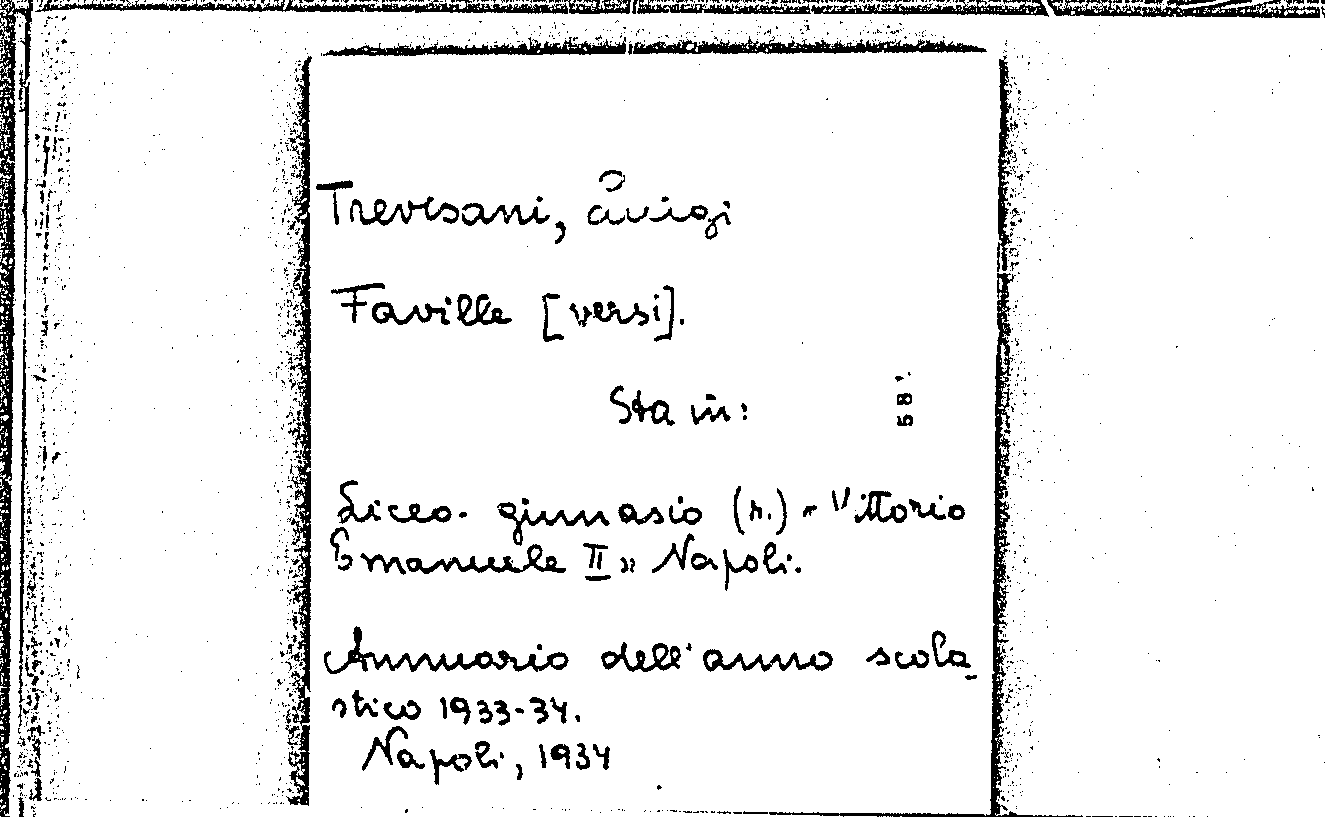 Trevisani, Luigi
Faville [versi].
Sta in:
Liceo-ginnasio (r.) « Vittorio
Emanuele II » Napoli.
Annuario dell'anno scola-
stico 1933-34.
Napoli, 1934